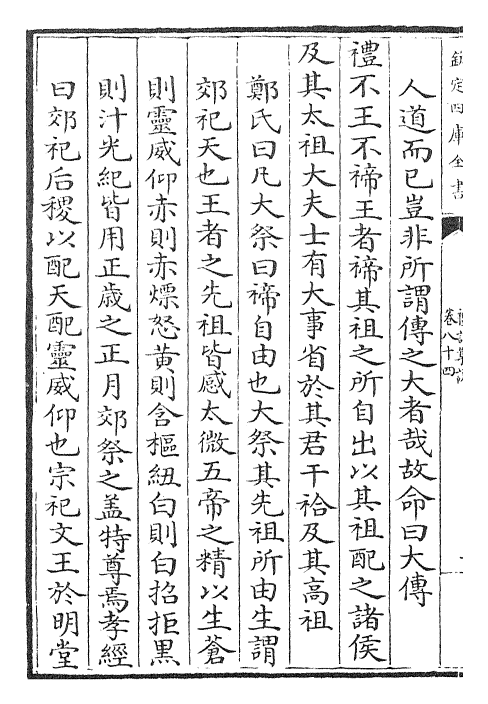 欽定四庫全書
卷八十四
人道而已豈非所謂傳之大者哉故命曰大傳
禮不王不禘王者禘其祖之所自出以其祖配之諸侯
及其太祖大夫士有大事省於其君干祫及其高祖
鄭氏曰凡大祭曰禘自由也大祭其先祖所由生謂
郊祀天也王者之先祖皆感太微五帝之精以生蒼
則靈威仰赤則赤熛怒黃則含樞紐白則白招拒黑
則汁光紀皆用正歲之正月郊祭之盖特尊焉孝經
曰郊祀后稷以配天配靈威仰也宗祀文王於明堂